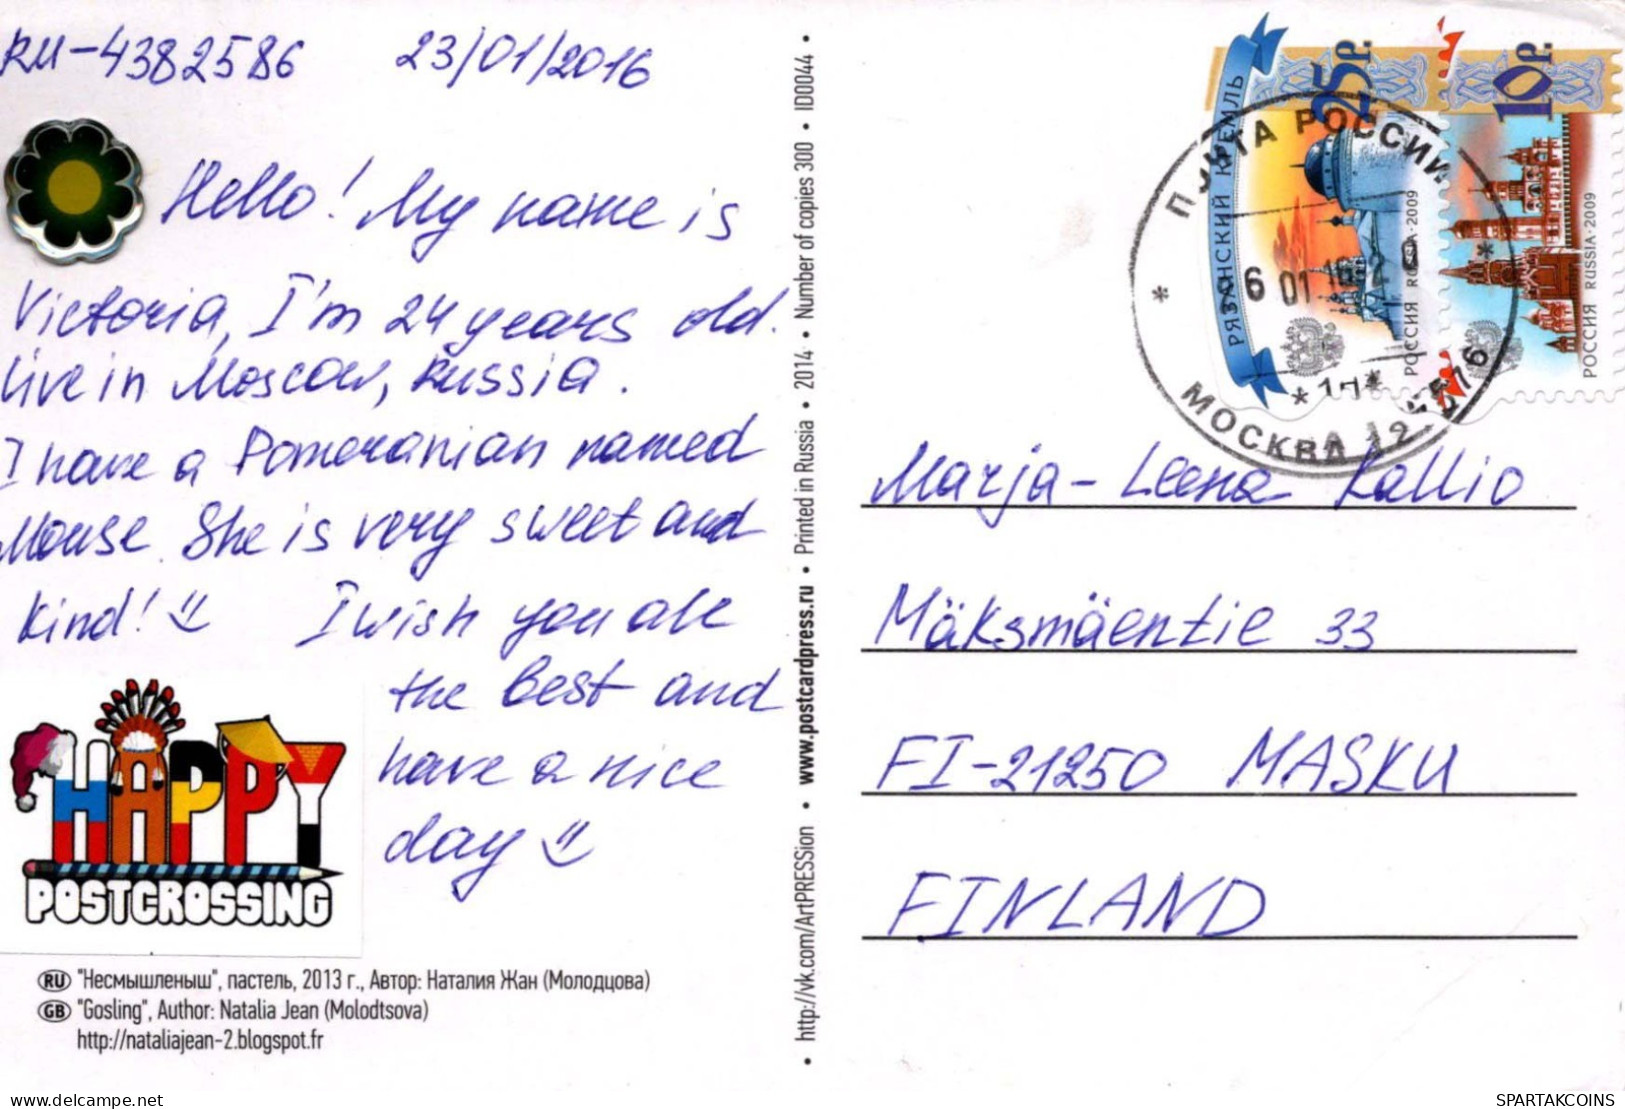 RU-4382586 23/01/2016
Hello! My name is
Victoria, I'm 24 years old.
live in Moscow, Russia.
I have a Pomeranian named
Mouse. She is very sweet and
kind!
I wish you all
the best and
have a nice
day
HAPPY
POSTCROSSING
RU "Несмышленыш", пастель, 2013 г., Автор: Наталия Жан (Молодцова)
GB "Gosling", Author: Natalia Jean (Molodtsova)
http://nataliajean-2.blogspot.fr
• http://vk.com/ArtPRESSion • www.postcardpress.ru • Printed in Russia • 2014 • Number of copies 300 • ID0044 •
РЯЗАНСКИЙ КРЕМЛЬ
25р.
РОССИЯ RUSSIA·2009
10р.
РОССИЯ RUSSIA·2009
ПОЧТА РОССИИ
МОСКВА
Marja-Leena Kallio
Mäksmäentie 33
FI-21250 MASKU
FINLAND
delcampe.net
SPARTAKCOINS